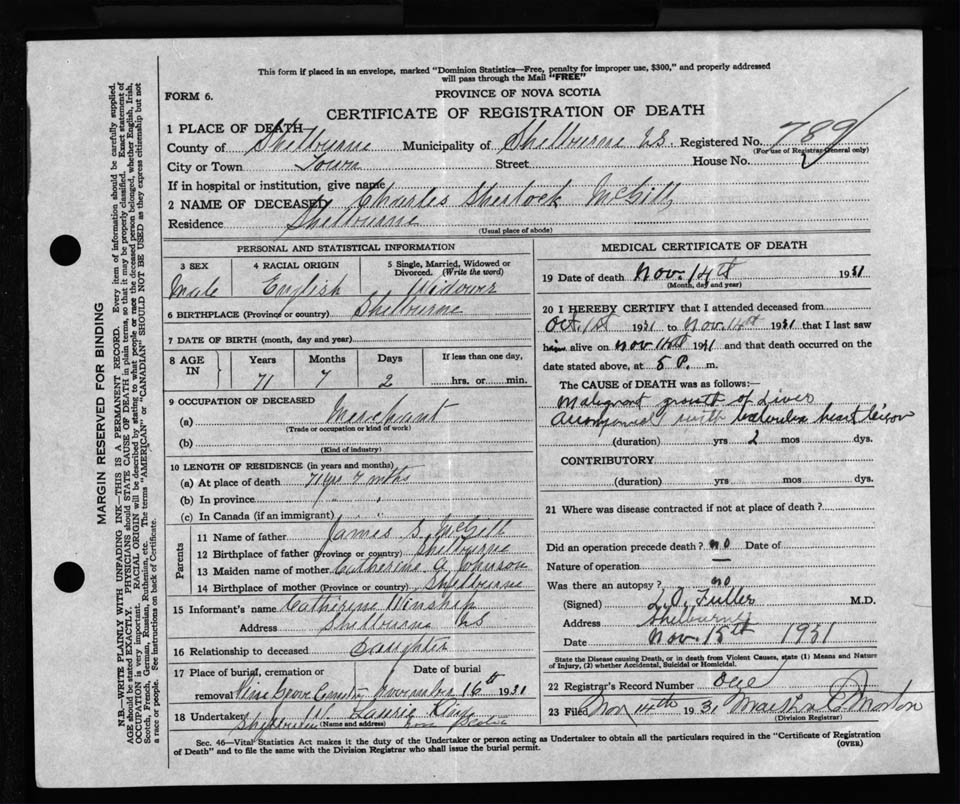 This form if placed in an envelope, marked "Dominion Statistics—Free, penalty for improper use, $300," and properly addressed
will pass through the Mail "FREE"
FORM 6.
PROVINCE OF NOVA SCOTIA
CERTIFICATE OF REGISTRATION OF DEATH
1 PLACE OF DEATH
County of Shelburne Municipality of Shelburne Registered No. 789
(For use of Registrar General only)
City or Town Town Street House No.
If in hospital or institution, give name
2 NAME OF DECEASED Charles Sherlock McGill
Residence Shelburne
(Usual place of abode)
PERSONAL AND STATISTICAL INFORMATION
3 SEX 4 RACIAL ORIGIN 5 Single, Married, Widowed or
Divorced. (Write the word)
Male English Widower
6 BIRTHPLACE (Province or country) Shelburne
7 DATE OF BIRTH (month, day and year)
8 AGE IN Years Months Days If less than one day,
71 7 2 hrs. or min.
9 OCCUPATION OF DECEASED
(a) Merchant
(Trade or occupation or kind of work)
(b)
(Kind of industry)
10 LENGTH OF RESIDENCE (in years and months)
(a) At place of death 71 yrs 7 mths
(b) In province " "
(c) In Canada (if an immigrant)
Parents
11 Name of father James S. McGill
12 Birthplace of father (Province or country) Shelburne
13 Maiden name of mother Catherine Johnson
14 Birthplace of mother (Province or country) Shelburne
15 Informant's name Catherine Winship
Address Shelburne
16 Relationship to deceased Daughter
17 Place of burial, cremation or Date of burial
removal Pine Grove Cemetery November 16th 1931
18 Undertaker Laurie King
Shelburne (Name and address) Nova Scotia
MEDICAL CERTIFICATE OF DEATH
19 Date of death Nov. 14th 1931
(Month, day and year)
20 I HEREBY CERTIFY that I attended deceased from
Oct. 1st 1931 to Nov. 14th 1931 that I last saw
him alive on Nov 14th 1931 and that death occurred on the
date stated above, at 5 P. m.
The CAUSE of DEATH was as follows:—
Malignant growth of Liver
with heart lesion
(duration) yrs 2 mos dys.
CONTRIBUTORY
(duration) yrs. mos. dys.
21 Where was disease contracted if not at place of death?
Did an operation precede death? no Date of
Nature of operation —
Was there an autopsy? no
(Signed) L. O. Fuller M.D.
Address Shelburne
Date Nov. 15th 1931
State the Disease causing Death, or in death from Violent Causes, state (1) Means and Nature
of Injury, (2) whether Accidental, Suicidal or Homicidal.
22 Registrar's Record Number
23 Filed Nov 14th 1931 Morton
(Division Registrar)
Sec. 46—Vital Statistics Act makes it the duty of the Undertaker or person acting as Undertaker to obtain all the particulars required in the "Certificate of Registration
of Death" and to file the same with the Division Registrar who shall issue the burial permit.
(OVER)
MARGIN RESERVED FOR BINDING
N.B.—WRITE PLAINLY WITH UNFADING INK—THIS IS A PERMANENT RECORD. Every item of information should be carefully supplied.
AGE should be stated EXACTLY. PHYSICIANS should STATE CAUSE OF DEATH in plain terms, so that it may be properly classified. Exact statement of
OCCUPATION is very important. RACIAL ORIGIN will be described by stating to what people or race the deceased person belonged, whether English, Irish,
Scotch, French, German, Russian, Ruthenian, etc. The terms "AMERICAN" or "CANADIAN" SHOULD NOT BE USED as they express citizenship but not
a race or people. See instructions on back of Certificate.